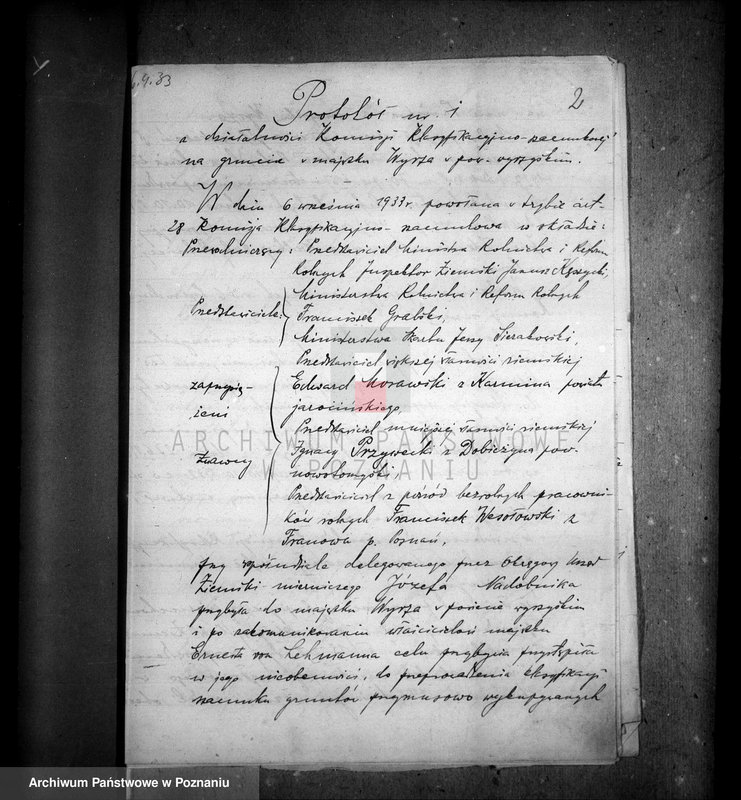 4.9.33
2
Protokół nr. 1
z działalności Komisji Klasyfikacyjno-szacunkowej
na gruncie v majątku Wyrza v pow. wyrzyskim.
W dniu 6 września 1933 r. powołana v trybie art.
28 Komisja Klasyfikacyjno-szacunkowa w składzie:
Przewodniczący: Przedstawiciel Ministra Rolnictwa i Reform
Rolnych Inspektor Ziemski Janusz
Przedstawiciele:
Ministerstwa Rolnictwa i Reform Rolnych
Franciszek Grabski,
Ministerstwa Skarbu Jerzy Sierakowski,
zaprzysię-
żeni
znawcy
Przedstawiciel większej własności ziemskiej
Edward Morawski z Karmina powiatu
jarocińskiego,
Przedstawiciel mniejszej własności ziemskiej
Ignacy Przywecki z Dobieżyna pow.
nowotomyski
Przedstawiciel z pośród bezrolnych pracowni-
ków rolnych Franciszek Wesołowski z
Franowa p. Poznań,
przy współudziale delegowanego przez Okręgowy Urząd
Ziemski mierniczego Józefa Nadobnika
przybyła do majątku Wyrza v powiecie wyrzyskim
i po zakomunikowaniu właścicielowi majątku
Ernesta von Lehmanna celu przybycia przystąpiła
w jego nieobecności, do przeprowadzenia klasyfikacji
szacunku gruntów przymusowo wykupywanych
ARCHIWUM PAŃSTWOWE
W POZNANIU
Archiwum Państwowe w Poznaniu